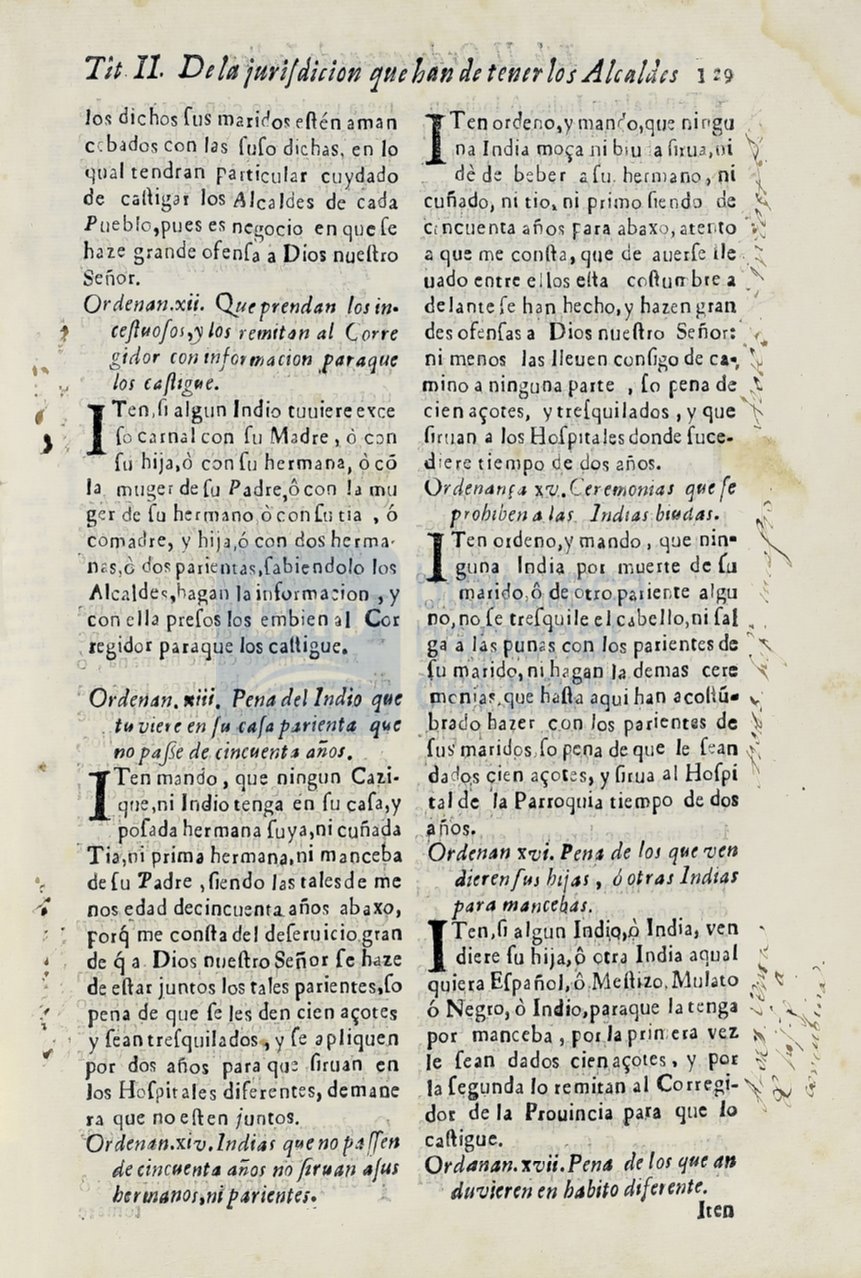 Tit II. De la jurisdicion que han de tener los Alcaldes 129
los dichos sus maridos estén aman
cebados con las suso dichas, en lo
qual tendran particular cuydado
de castigar los Alcaldes de cada
Pueblo, pues es negocio en que se
haze grande ofensa a Dios nuestro
Señor.
Ordenan.xii. Que prendan los in-
cestuosos, y los remitan al Corre
gidor con informacion paraque
los castigue.
ITen, si algun Indio tuuiere exce
so carnal con su Madre, ò con
su hija, ò con su hermana, ò cõ
la muger de su Padre, ô con la mu
ger de su hermano ò con su tia, ó
comadre, y hija, ó con dos herma-
nas, ò dos parientas, sabiendolo los
Alcaldes, hagan la informacion, y
con ella presos los embien al Cor
regidor paraque los castigue.
Ordenan. xiii. Pena del Indio que
tuviere en su casa parienta que
no passe de cincuenta años.
ITen mando, que ningun Cazi-
que, ni Indio tenga en su casa, y
posada hermana suya, ni cuñada
Tia, ni prima hermana, ni manceba
de su Padre, siendo las tales de me
nos edad de cincuenta años abaxo,
porq̃ me consta del deseruicio gran
de q̃ a Dios nuestro Señor se haze
de estar juntos los tales parientes, so
pena de que se les den cien açotes
y sean tresquilados, y se apliquen
por dos años para que siruan en
los Hospitales diferentes, demane
ra que no esten juntos.
Ordenan.xiv. Indias que no passen
de cincuenta años no siruan a sus
hermanos, ni parientes.
ITen ordeno, y mando, que ningu
na India moça ni biuda sirua, ni
dè de beber a su hermano, ni
cuñado, ni tio, ni primo siendo de
cincuenta años para abaxo, atento
a que me consta, que de auerse lle
uado entre ellos esta costumbre a
delante se han hecho, y hazen gran
des ofensas a Dios nuestro Señor:
ni menos las lleuen consigo de ca-
mino a ninguna parte, so pena de
cien açotes, y tresquilados, y que
siruan a los Hospitales donde suce-
diere tiempo de dos años.
Ordenança xv. Ceremonias que se
prohiben a las Indias biudas.
ITen ordeno, y mando, que nin-
guna India por muerte de su
marido, ô de otro pariente algu
no, no se tresquile el cabello, ni sal
ga a las punas con los parientes de
su marido, ni hagan la demas cere
monias, que hasta aqui han acostũ-
brado hazer con los parientes de
sus maridos, so pena de que le sean
dados cien açotes, y sirua al Hospi
tal de la Parroquia tiempo de dos
años.
Ordenan xvi. Pena de los que ven
dieren sus hijas, ó otras Indias
para mancebas.
ITen, si algun Indio, ò India, ven
diere su hija, ô otra India aqual
quiera Español, ô Mestizo, Mulato
ó Negro, ò Indio, paraque la tenga
por manceba, por la primera vez
le sean dados cien açotes, y por
la segunda lo remitan al Corregi-
dor de la Prouincia para que lo
castigue.
Ordanan.xvii. Pena de los que an
duvieren en habito diferente.
Iten